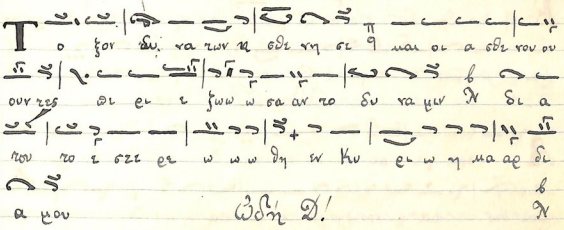 Το ξον δυ να των η σθε νη σε π̣ και οι α σθε νου ου
ουν τες πε ρι ε ζωω ω σα αν το δυ να μιν δι α
του το ε στε ρε ω ω ω θη εν Κυ ρι ω η κα αρ δι
α μου Ὠδή Δ!